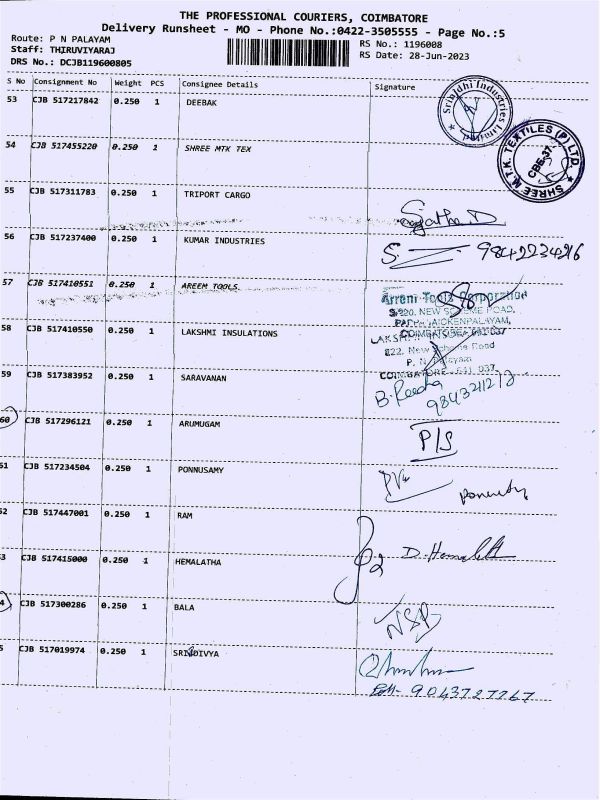 THE PROFESSIONAL COURIERS, COIMBATORE
Delivery Runsheet - MO - Phone No.:0422-3505555 - Page No.:5
Route: P N PALAYAM
Staff: THIRUVIYARAJ
DRS No.: DCJB119600805
RS No.: 1196008
RS Date: 28-Jun-2023
S No Consignment No Weight PCS Consignee Details Signature
53 CJB 517217842 0.250 1 DEEBAK
Srinidhi Industries
54 CJB 517455220 0.250 1 SHREE MTK TEX
SHREE M.T.K. TEXTILES (P) LTD
CBE-37.
55 CJB 517311783 0.250 1 TRIPORT CARGO
56 CJB 517237400 0.250 1 KUMAR INDUSTRIES
9842234216
57 CJB 517410551 0.250 1 AREEM TOOLS
Corporation
NEW SCHEME ROAD,
58 CJB 517410550 0.250 1 LAKSHMI INSULATIONS
COIMBATORE - 641 037.
59 CJB 517383952 0.250 1 SARAVANAN
B.
60 CJB 517296121 0.250 1 ARUMUGAM
P/S
51 CJB 517234504 0.250 1 PONNUSAMY
52 CJB 517447001 0.250 1 RAM
3 CJB 517415000 0.250 1 HEMALATHA
4 CJB 517300286 0.250 1 BALA
NSP
5 CJB 517019974 0.250 1 SRINDIVYA
9043727267